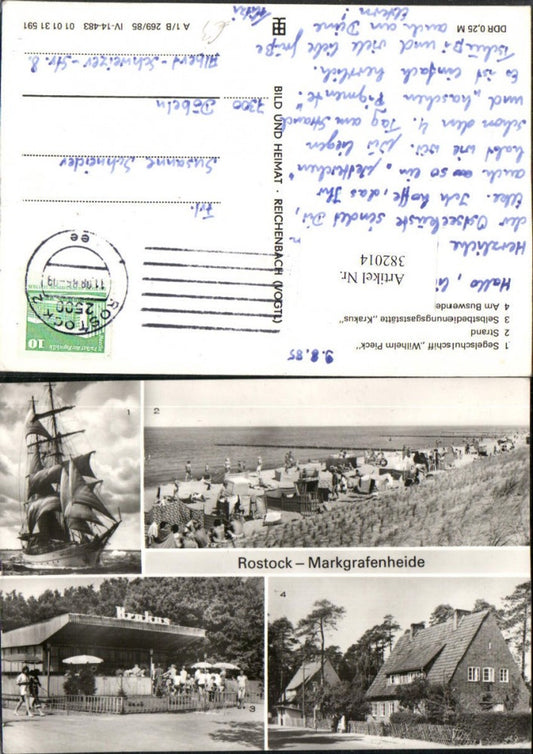 1 Segelschulschiff „Wilhelm Pieck"
2 Strand
3 Selbstbedienungsgaststätte „Krakus"
4 Am Buswende
9.8.85
Artikel Nr.
382014
Hallo,
Herzliche
der Ostseeküste sendet Dir,
Elke. Ich hoffe, das Ihr
auch so ein
habt wie wir. Wir liegen
schon den 4. Tag am Strand
und „haschen Pigmente".
Es ist einfach herrlich.
Tschüß und viele liebe Grüße
auch an Deine
Eltern!
BILD UND HEIMAT · REICHENBACH (VOGTL)
DDR 0,25 M
A 1/B 269/85 IV-14-483 01 01 31 591
ROSTOCK
2500
10
Frl.
Susanne Schneider
7300 Döbeln
Albert-Schweizer-Str. 8
1
2
Rostock – Markgrafenheide
3
4